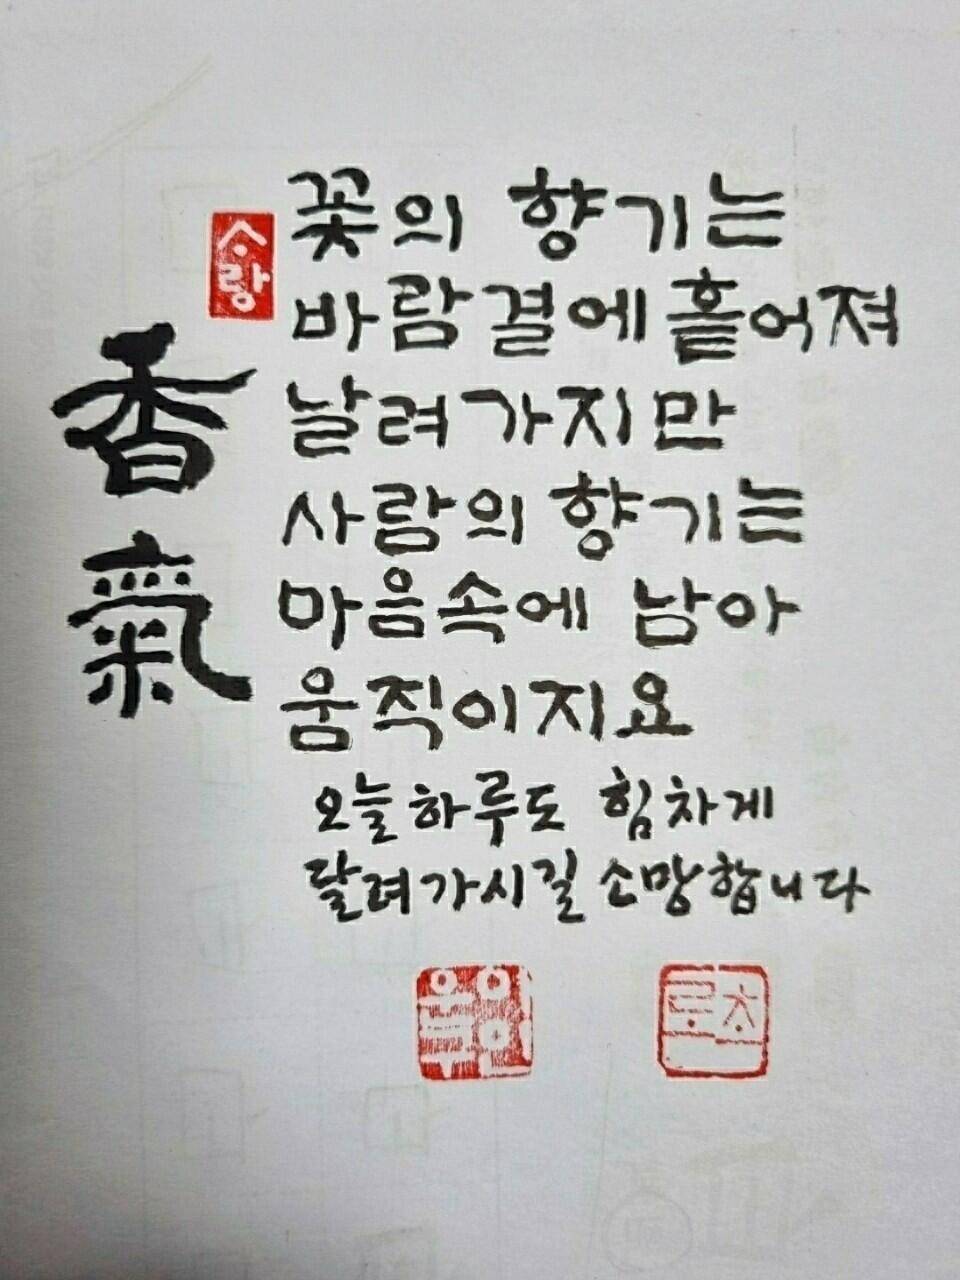 사랑
香氣
꽃의 향기는
바람결에 흩어져
날려가지만
사람의 향기는
마음속에 남아
움직이지요
오늘하루도 힘차게
달려가시길 소망합니다